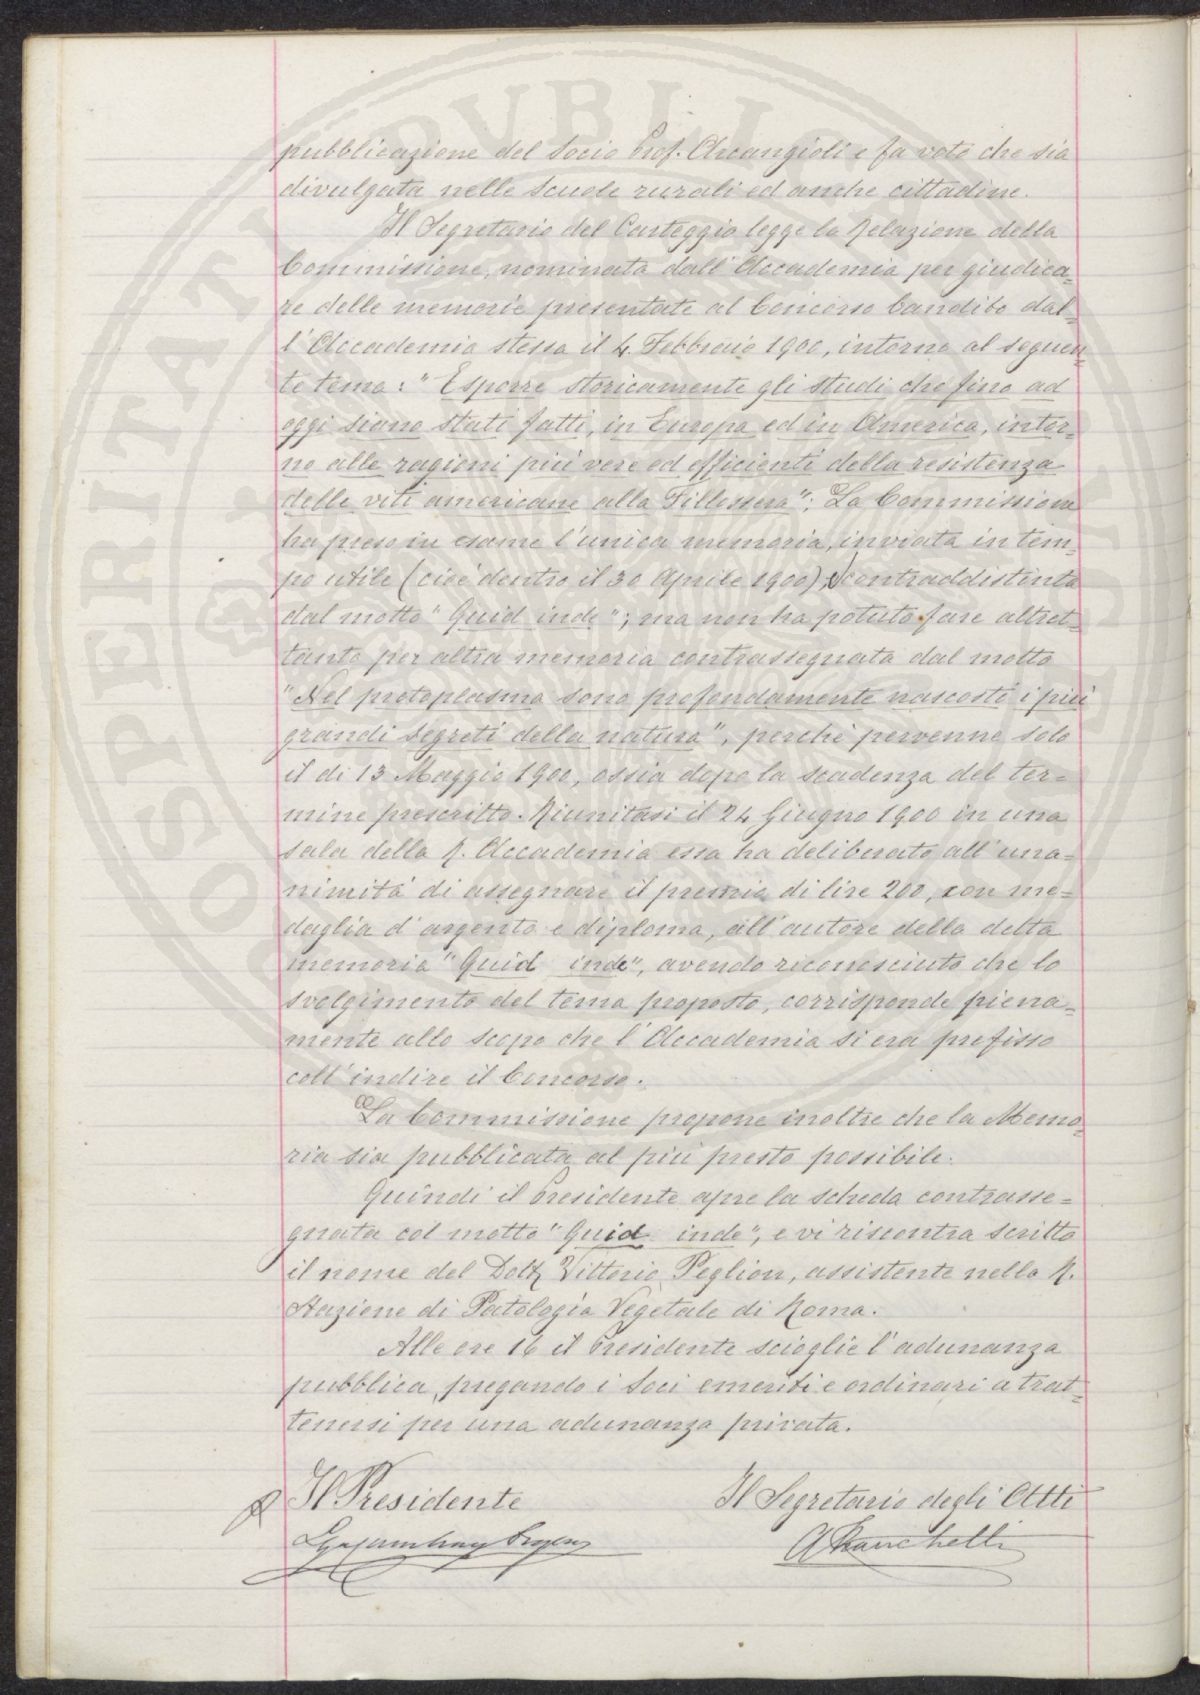 pubblicazione del Socio Prof. Arcangioli e fa voto che sia
divulgata nelle scuole rurali ed anche cittadine.
Il Segretario del Carteggio legge la Relazione della
Commissione, nominata dall'Accademia per giudica=
re delle memorie presentate al Concorso bandito dal=
l'Accademia stessa il 4 Febbraio 1900, intorno al seguen=
te tema: "Esporre storicamente gli studi che fino ad
oggi siano stati fatti, in Europa ed in America, intor=
no alle ragioni più vere ed efficienti della resistenza
delle viti americane alla Fillossera"; La Commissione
ha preso in esame l'unica memoria, inviata in tem=
po utile (cioè dentro il 30 Aprile 1900) contraddistinta
dal motto "Quid inde"; ma non ha potuto fare altret=
tanto per altra memoria contrassegnata dal motto
"Nel protoplasma sono profondamente nascosti i più
grandi segreti della natura", perchè pervenne solo
il dì 13 Maggio 1900, ossia dopo la scadenza del ter=
mine prescritto. Riunitasi il 24 Giugno 1900 in una
sala della R. Accademia essa ha deliberato all'una=
nimità di assegnare il premio di lire 200, con me=
daglia d'argento e diploma, all'autore della detta
memoria "Quid inde", avendo riconosciuto che lo
svolgimento del tema proposto, corrisponde piena=
mente allo scopo che l'Accademia si era prefisso
coll'indire il Concorso.
La Commissione propone inoltre che la Memo=
ria sia pubblicata al più presto possibile.
Quindi il Presidente apre la scheda contrasse=
gnata col motto "Quid inde", e vi riscontra scritto
il nome del Dott. Vittorio Peglion, assistente nella R.
Stazione di Patologia Vegetale di Roma.
Alle ore 16 il Presidente scioglie l'adunanza
pubblica, pregando i Soci emeriti e ordinari a trat=
tenersi per una adunanza privata.
Il Presidente
Il Segretario degli Atti
PROSPERITATI PUBLICAE